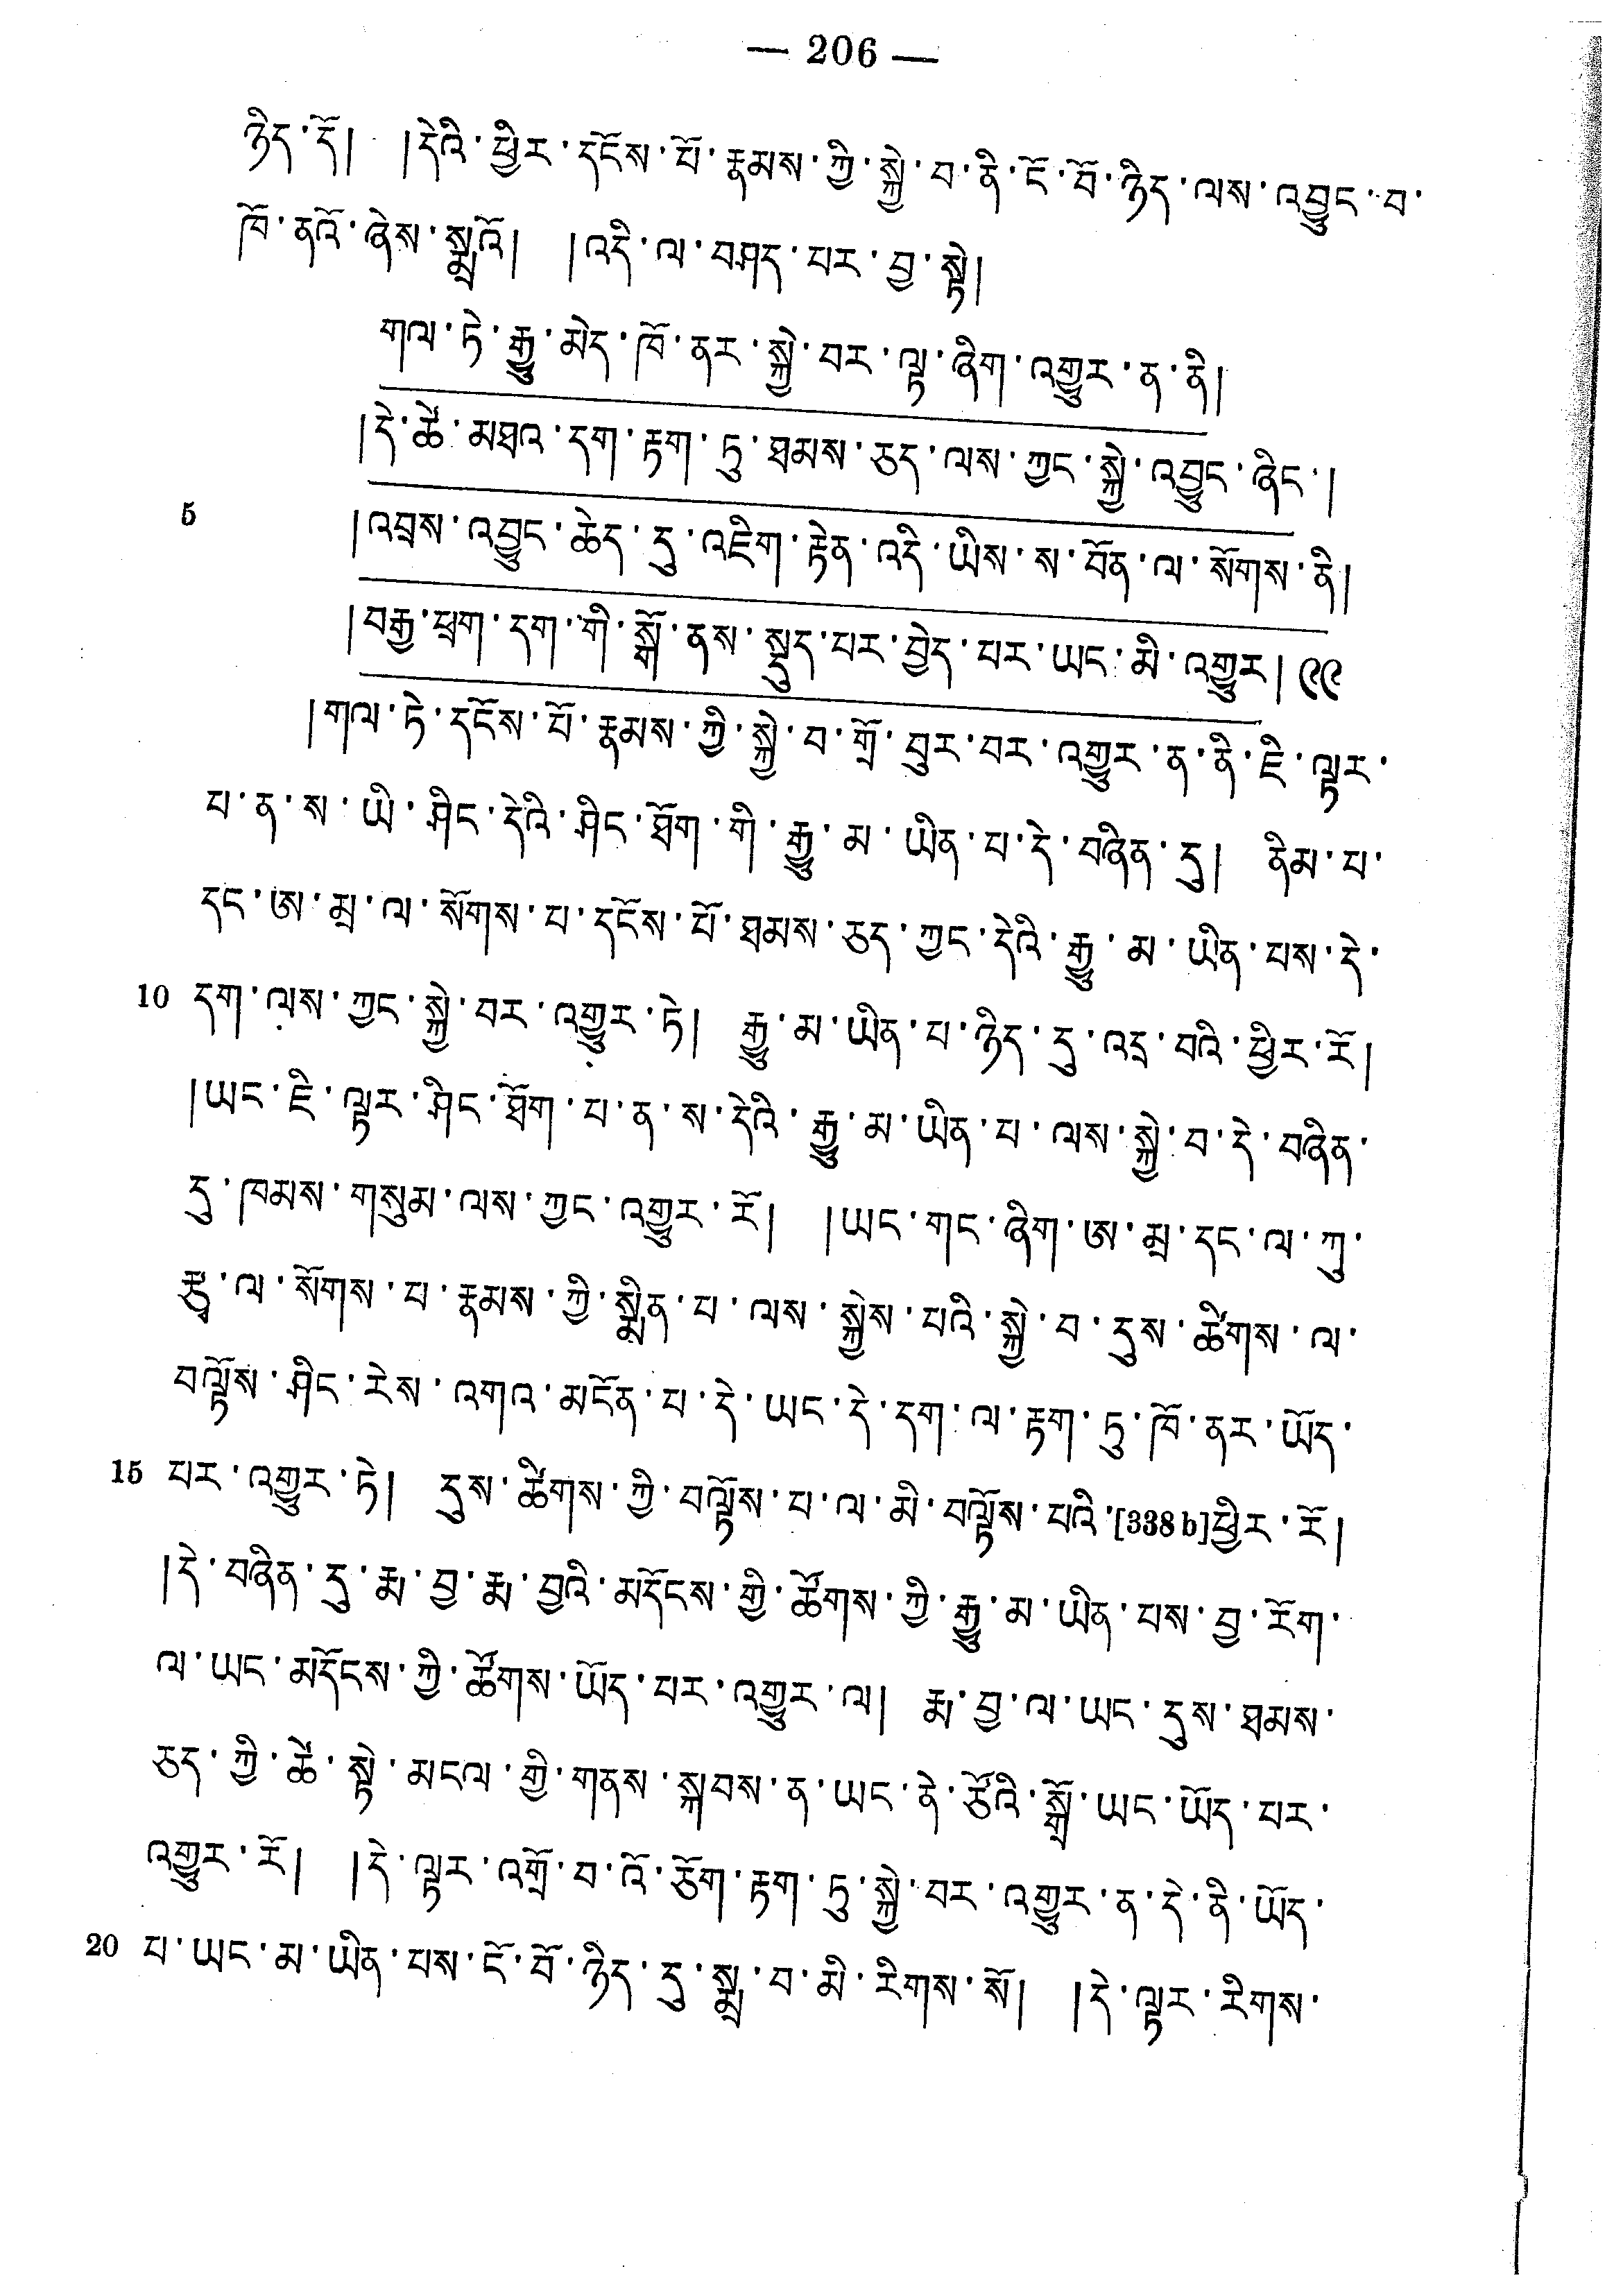 — 206 —
ཉིད་དོ། །དེའི་ཕྱིར་དངོས་པོ་རྣམས་ཀྱི་སྐྱེ་བ་ནི་ངོ་བོ་ཉིད་ལས་འབྱུང་བ་
ཁོ་ནའོ་ཞེས་སྨྲའོ། །འདི་ལ་བཤད་པར་བྱ་སྟེ།
གལ་ཏེ་རྒྱུ་མེད་ཁོ་ནར་སྐྱེ་བར་ལྟ་ཞིག་འགྱུར་ན་ནི།
།དེ་ཚེ་མཐའ་དག་རྟག་ཏུ་ཐམས་ཅད་ལས་ཀྱང་སྐྱེ་འབྱུང་ཞིང་།
5 །འབྲས་འབྱུང་ཆེད་དུ་འཇིག་རྟེན་འདི་ཡིས་ས་བོན་ལ་སོགས་ནི།
།བརྒྱ་ཕྲག་དག་གི་སྒོ་ནས་སྡུད་པར་བྱེད་པར་ཡང་མི་འགྱུར། ༩༩
།གལ་ཏེ་དངོས་པོ་རྣམས་ཀྱི་སྐྱེ་བ་གློ་བུར་བར་འགྱུར་ན་ནི་ཇི་ལྟར་
པ་ན་ས་ཡི་ཤིང་དེའི་ཤིང་ཐོག་གི་རྒྱུ་མ་ཡིན་པ་དེ་བཞིན་དུ། ནིམ་པ་
དང་ཨ་མྲ་ལ་སོགས་པ་དངོས་པོ་ཐམས་ཅད་ཀྱང་དེའི་རྒྱུ་མ་ཡིན་པས་དེ་
10 དག་ལས་ཀྱང་སྐྱེ་བར་འགྱུར་ཏེ། རྒྱུ་མ་ཡིན་པ་ཉིད་དུ་འདྲ་བའི་ཕྱིར་རོ།
།ཡང་ཇི་ལྟར་ཤིང་ཐོག་པ་ན་ས་དེའི་རྒྱུ་མ་ཡིན་པ་ལས་སྐྱེ་བ་དེ་བཞིན་
དུ་ཁམས་གསུམ་ལས་ཀྱང་འགྱུར་རོ། །ཡང་གང་ཞིག་ཨ་མྲ་དང་ལ་ཀུ་
ཙ་ལ་སོགས་པ་རྣམས་ཀྱི་སྨིན་པ་ལས་སྐྱེས་པའི་སྐྱེ་བ་དུས་ཚིགས་ལ་
བལྟོས་ཤིང་རེས་འགའ་མངོན་པ་དེ་ཡང་དེ་དག་ལ་རྟག་ཏུ་ཁོ་ནར་ཡོད་
15 པར་འགྱུར་ཏེ། དུས་ཚིགས་ཀྱི་བལྟོས་པ་ལ་མི་བལྟོས་པའི་[338 b]ཕྱིར་རོ།
།དེ་བཞིན་དུ་རྨ་བྱ་རྨ་བྱའི་མདོངས་གྱི་ཚོགས་ཀྱི་རྒྱུ་མ་ཡིན་པས་བྱ་རོག་
ལ་ཡང་མདོངས་ཀྱི་ཚོགས་ཡོད་པར་འགྱུར་ལ། རྨ་བྱ་ལ་ཡང་དུས་ཐམས་
ཅད་ཀྱི་ཚེ་སྟེ་མངལ་གྱི་གནས་སྐབས་ན་ཡང་ནེ་ཙོའི་སྒྲོ་ཡང་ཡོད་པར་
འགྱུར་རོ། །དེ་ལྟར་འགྲོ་བ་འོ་ཅོག་རྟག་ཏུ་སྐྱེ་བར་འགྱུར་ན་དེ་ནི་ཡོད་
20 པ་ཡང་མ་ཡིན་པས་ངོ་བོ་ཉིད་དུ་སྨྲ་བ་མི་རིགས་སོ། །དེ་ལྟར་རིགས་